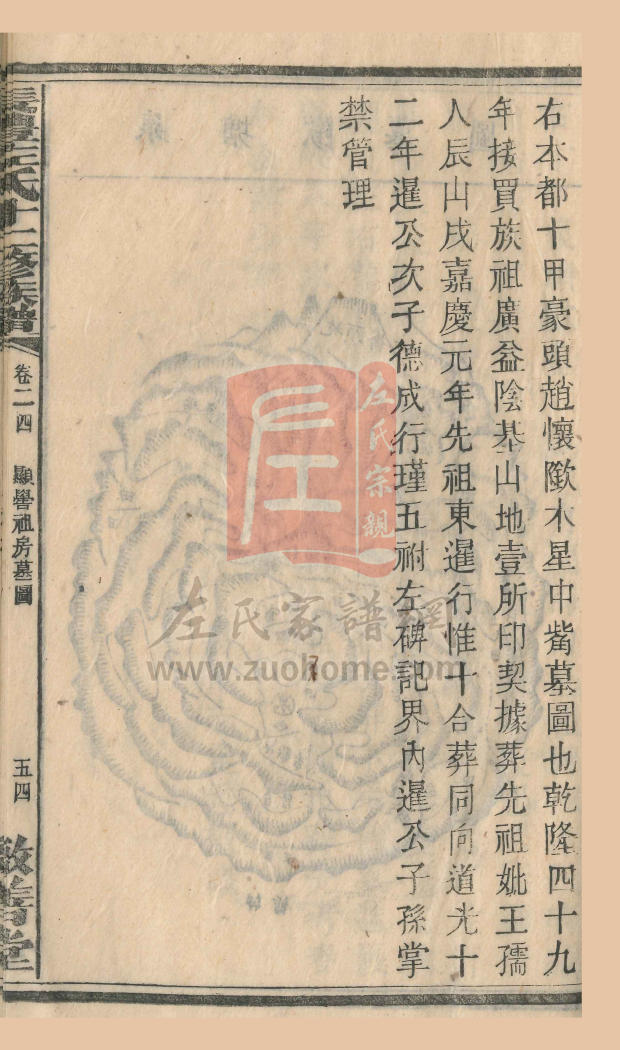 右本都十甲豪頭趙懷歐木星中觜墓圖也乾隆四十九
年接買族祖廣益陰基山地壹所印契據葬先祖妣王孺
人辰山戌嘉慶元年先祖東暹行惟十合葬同向道光十
二年暹公次子德成行瑾五祔左碑記界內暹公子孫掌
禁管理
左氏十一修族譜
卷二四 顯譽祖房墓圖
五四
敦善堂
左氏宗親
左氏家譜網
www.zuohome.com